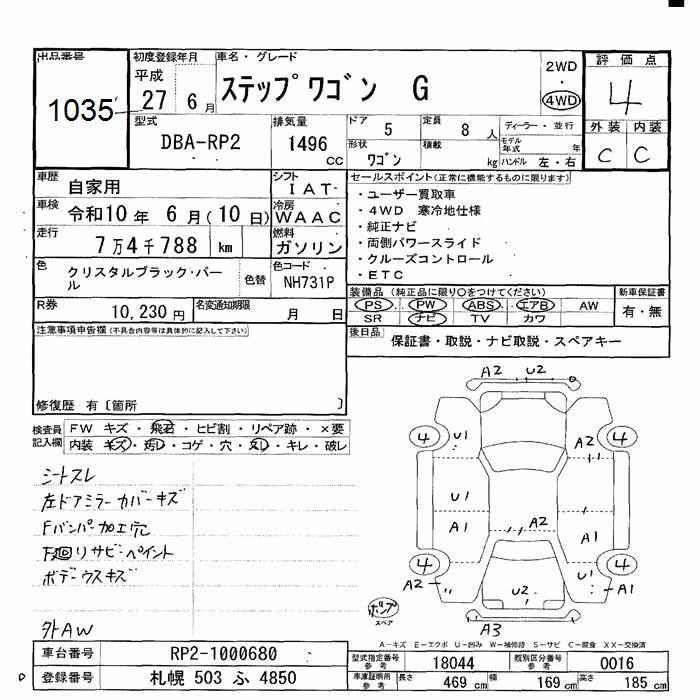 出品番号
1035
初度登録年月
平成
27 6月
車名・グレード
ステップワゴン G
2WD
・
4WD
評価点
4
外装 内装
C C
型式
DBA-RP2
排気量
1496
CC
ドア 5
定員 8 人
ディーラー・並行
形状
ワゴン
積載
kg
モデル年式 年
ハンドル 左・右
車歴
自家用
シフト
IAT
車検 令和10年 6月(10日)
冷房
WAAC
走行
7万4千788 km
燃料
ガソリン
色
クリスタルブラック・パール
色替
色コード
NH731P
R券
10,230円
名変通知期限
月 日
セールスポイント(正常に機能するものに限ります)
・ユーザー買取車
・4WD 寒冷地仕様
・純正ナビ
・両側パワースライド
・クルーズコントロール
・ETC
装備品 (純正品に限り○をつけてください)
PS PW ABS エアB AW
SR ナビ TV カワ
新車保証書
有・無
注意事項申告欄(不具合内容等は具体的に記入して下さい)
後日品
保証書・取説・ナビ取説・スペアキー
修復歴 有〔箇所 〕
検査員記入欄
FW キズ・飛石・ヒビ割・リペア跡・×要
内装 キズ・汚レ・コゲ・穴・スレ・キレ・破レ
シートスレ
左ドアミラーカバーキズ
Fバンパー加工穴
下廻りサビペイント
ボデーウスキズ
外AW
A2 U2
4 U1 A2 4
U1
A1 A2 A1
4 4
A2 U2 U1 A1
ポンプ
スペア
A3
A-キズ E-エクボ U-凹み W-補修跡 S-サビ C-腐食 XX-交換済
車台番号
RP2-1000680
登録番号
札幌 503 ふ 4850
型式指定番号
参考
18044
類別区分番号
参考
0016
車庫証明用
参考
長さ 469 cm
幅 169 cm
高さ 185 cm